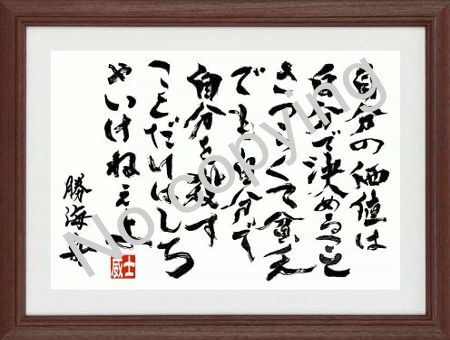 自分の価値は
自分で決めること
さつらくて貧乏
でも自分で
自分を殺す
ことだけはしち
ゃいけねぇよ
勝海舟
No copying